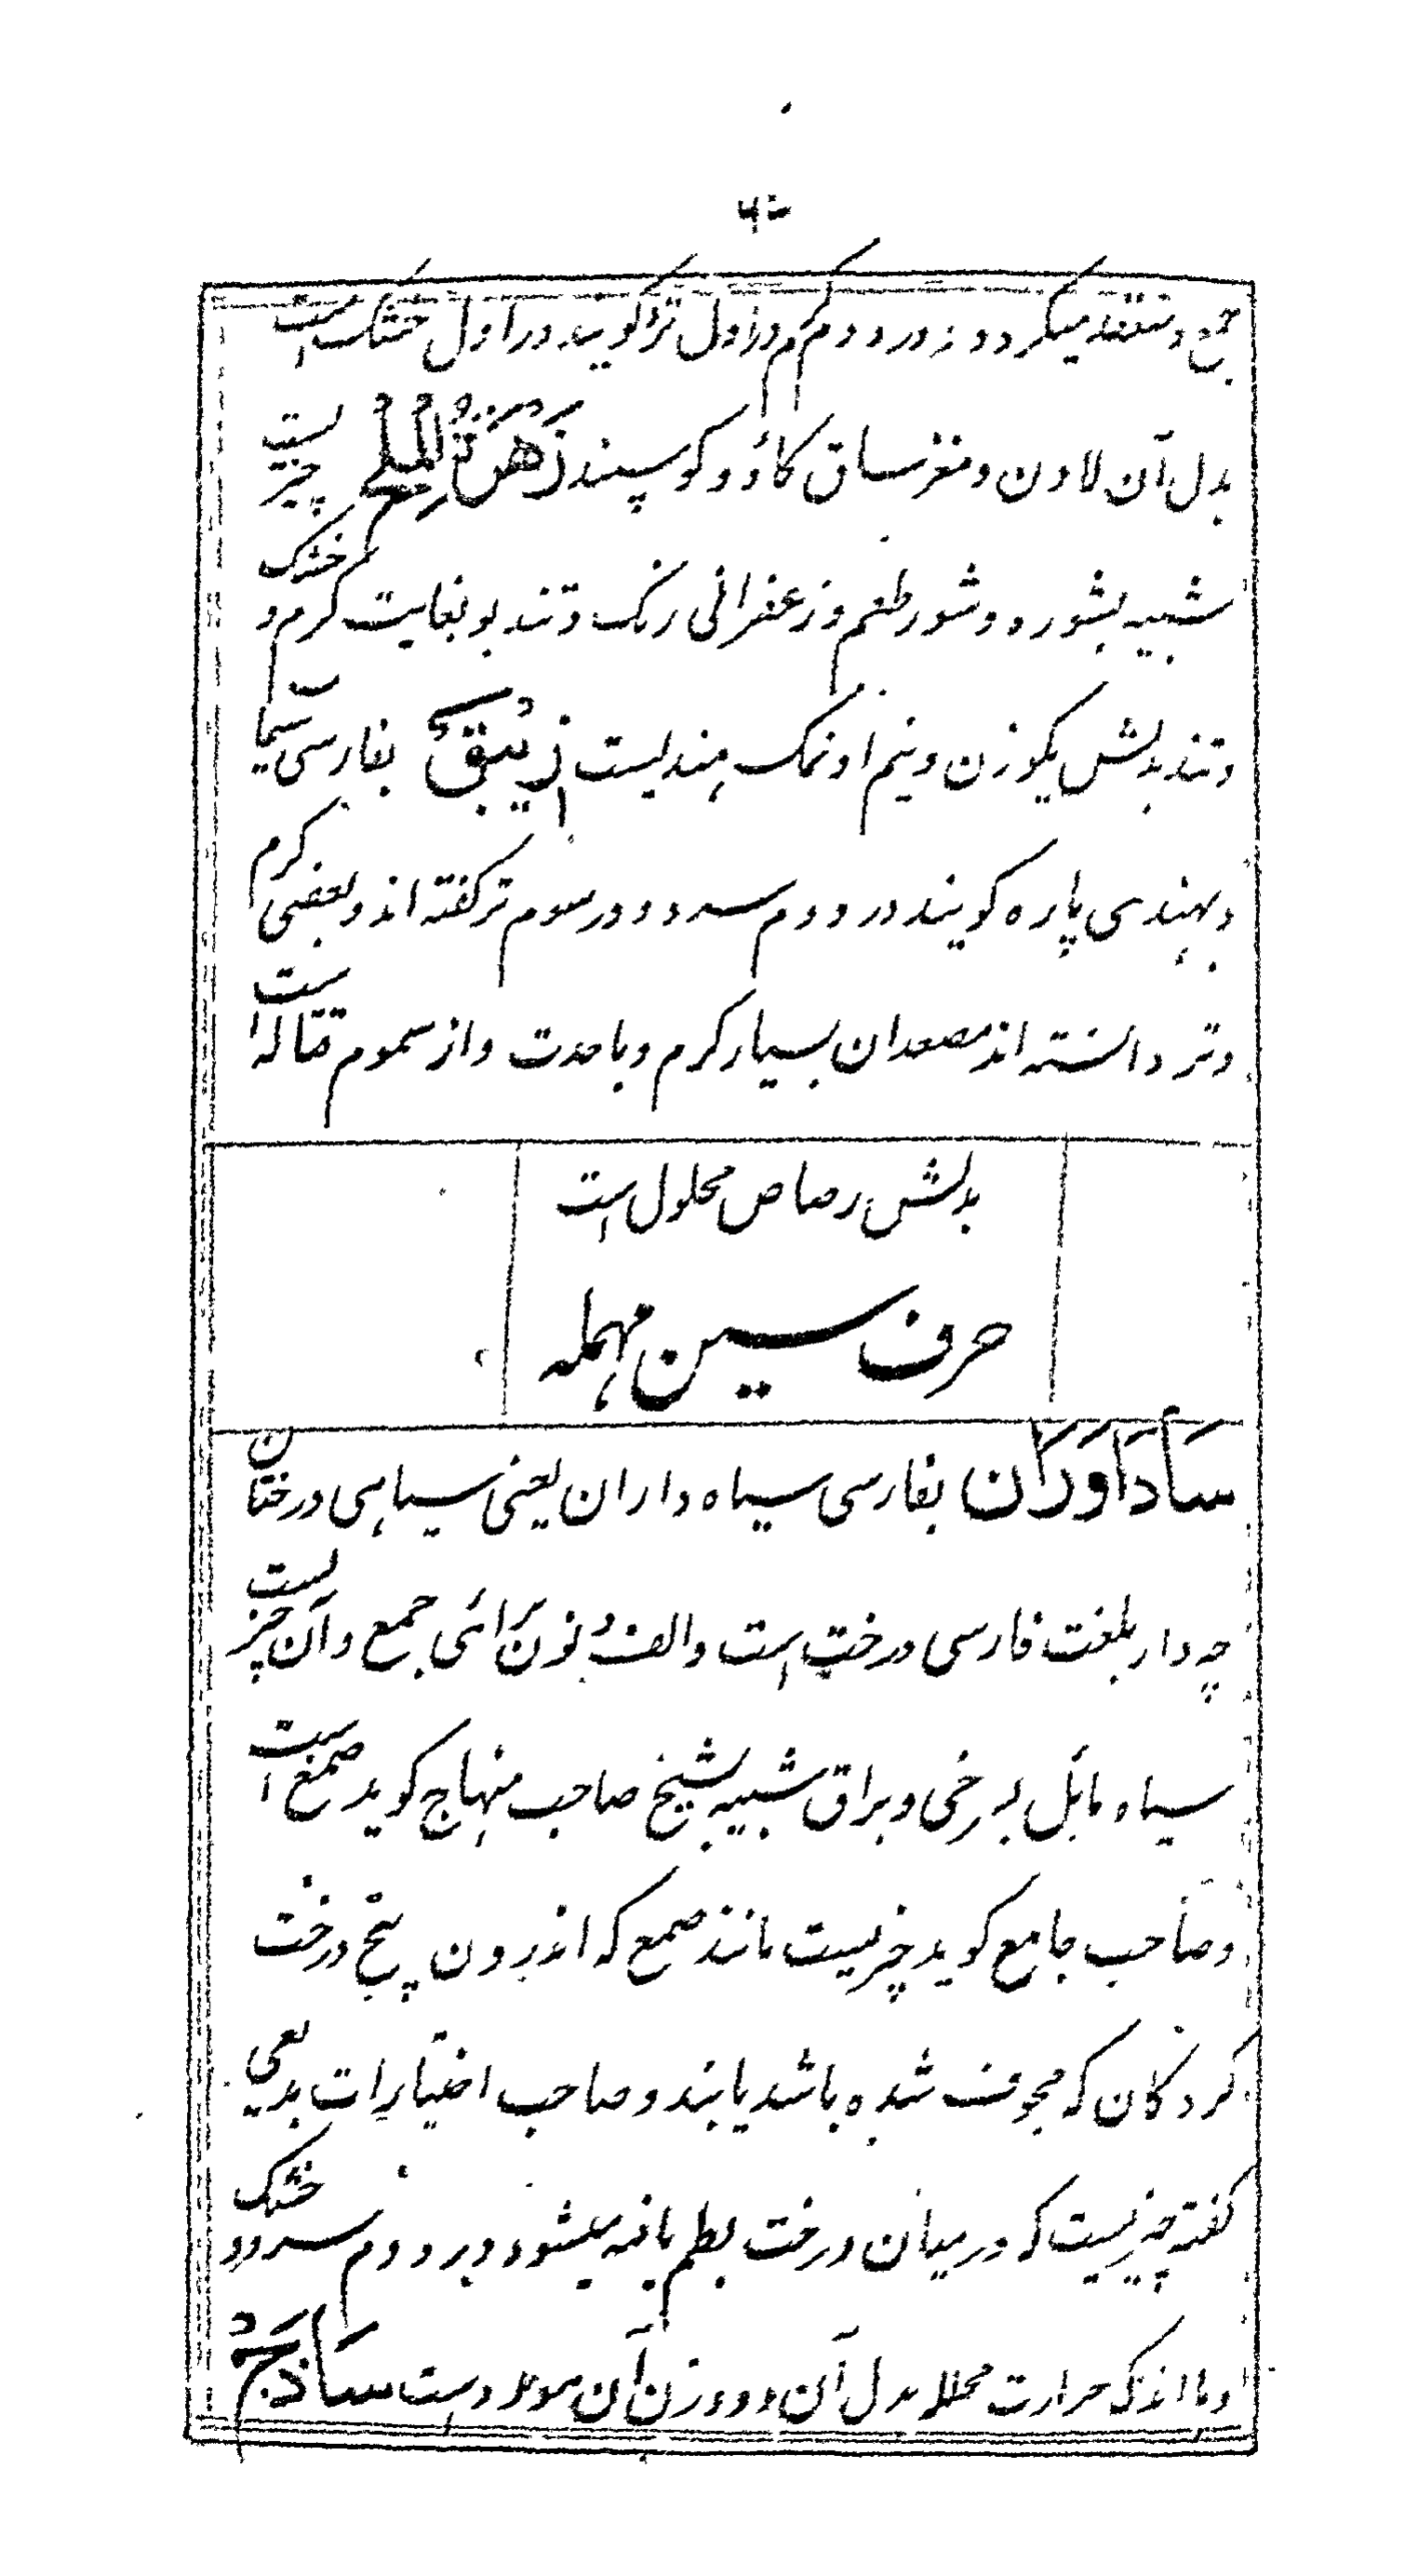 ۶۰
جمع و منعقد میگردد و در دوم گرم و در اول تر گویند در اول خشک است
بدل آن لادن و مغز ساق کاؤ و کوسپند زَهْرَةُ الْمِلْحِ چیزیست
شبیه بشوره و شور طعم و زعفرانی رنک و تند بو بغایت کرم و خشک
و تند بدلش یکوزن و نیم او نمک هندیست زیبق بفارسی سیماب
و بهندی پاره کویند در دوم سرد و در سوم تر کفته اند و بعضی کرم
و تر دانسته اند مصعد ان بسیار کرم و با حدت و از سموم قتاله است
بدلش رصاص محلول است
حرف سین مهمله
سَادَاوَرَان بفارسی سیاه داران یعنی سیاهی درختان
چه دار بلغت فارسی درخت است و الف و نون برائی جمع و آن چیزیست
سیاه مائل بسرخی و براق شبیه بشیخ صاحب منهاج کوید صمغ است
و صاحب جامع کوید چیزیست مانند صمغ که اندرون بیخ درخت
کردکان که مجوف شده باشد یابند و صاحب اختیارات بدیعی
کفته چیزیست که در میان درخت بطم یافته میشود و در دوم سرد و خشک
و با اندک حرارت محلله بدل آن دو وزن آن مورد است سَاذَجْ